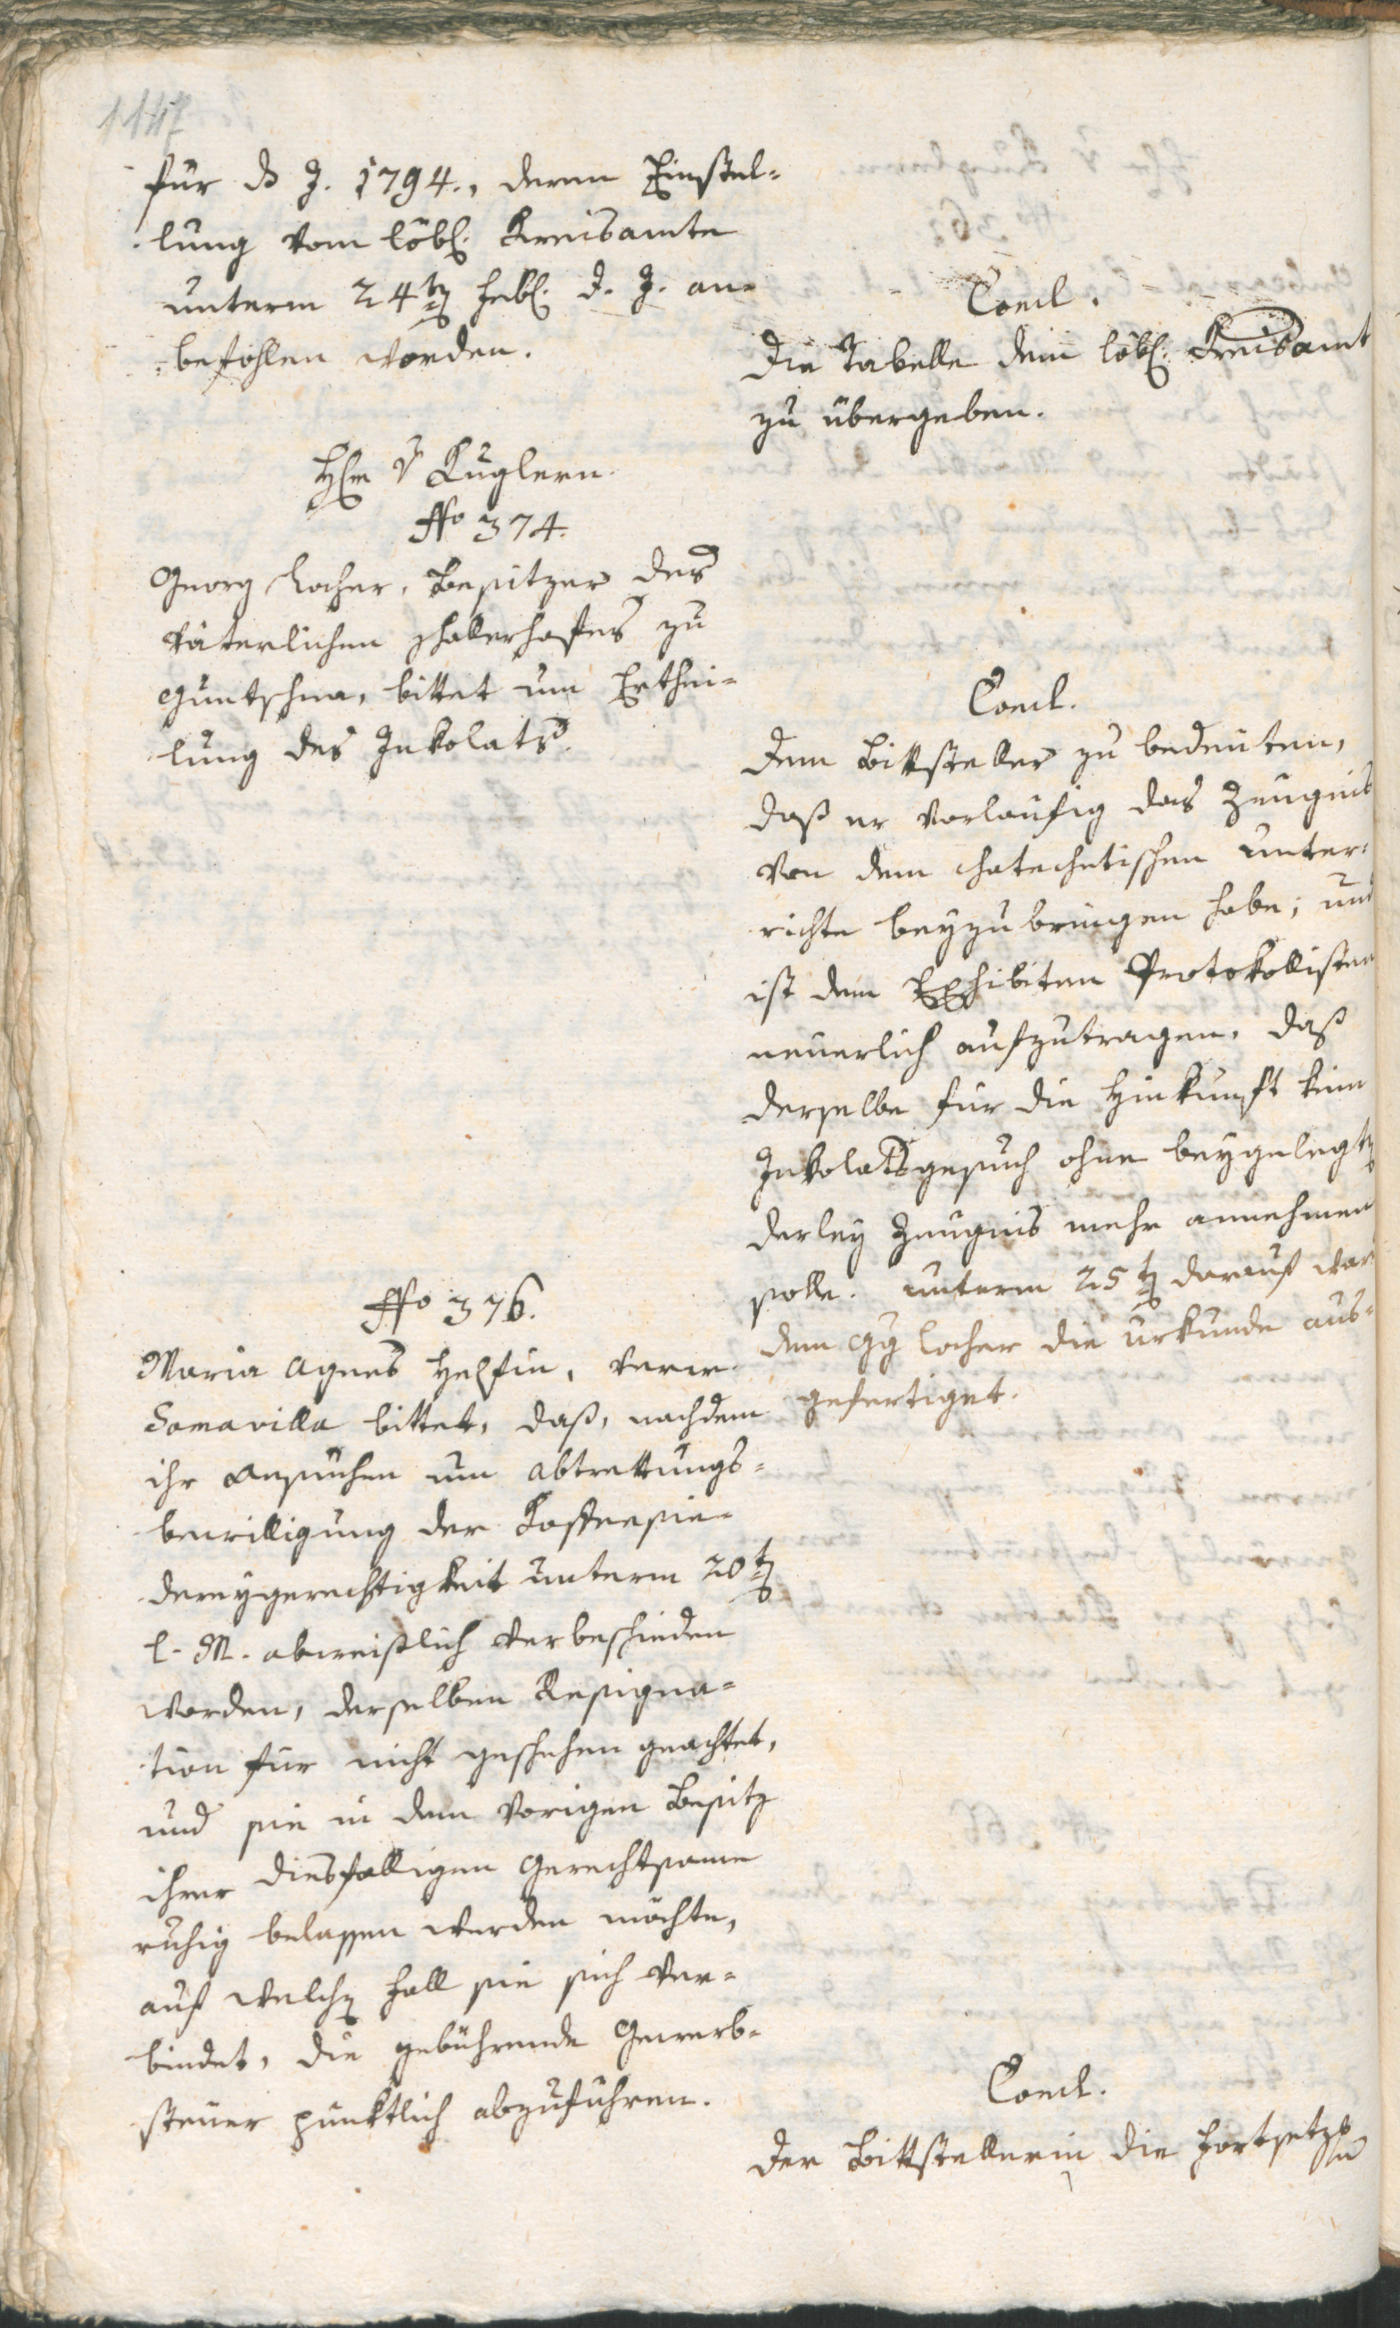 1147
für ds J. 1794., deren Einstel-
lung vom löbl. Kreisamte
unterm 24tn Febr. d. J. an-
befohlen worden.
Concl.
Die Tabelle dem löbl. Kreisamt
zu übergeben.
H v Kuglern.
No 374.
Georg Locher, Besitzer des
väterlichen hallerhofes zu
Guntschna, bittet um Erthei-
lung des Inkolats.
Concl.
Dem Bittsteller zu bedeuten,
daß er vorlaufig das Zeugnis
von dem chatechetischen Unter-
richte beyzubringen habe; und
ist dem Exhibiten Protokollisten
neuerlich aufzutragen, daß
derselbe für die Hinkunft kein
Inkolatsgesuch ohne beygelegtn
derley Zeugnis mehr annehmen
solle. Unterm 25tn darauf war
dem Gg Locher die Urkunde aus-
gefertiget.
No 376.
Maria Agnes Helfin, verw.
Somavilla bittet, daß, nachdem
ihr Ansuchen um Abtrettungs-
bewilligung der Kaffeesie-
dereygerechtigkeit unterm 20tn
l. M. abweißlich verbeschieden
worden, derselben Resigna-
tion für nicht geschehen geachtet,
und sie in dem vorigen Besitz
ihrer diesfalligen Gerechtsame
ruhig belassen werden möchte,
auf welchn Fall sie sich ver-
bindet, die gebührende Gewerb-
steuer punktlich abzuführen.
Concl.
Der Bittstellerin die Fortsetzg